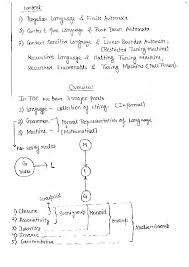 Content
1) Regular Language & Finite Automata
2) Context free Language & Push Down Automata
3) Context Sensitive Language & Linear Bounded Automata
(Restricted Turing Machine)
Recursive Language & Halting Turing Machine
Recursive Enumerable & Turing Machine
Overview
In TOC we have 3 major parts
1) Language - collection of string (Informal)
2) Grammar - Formal Representation of Language
3) Machine - (Mathematical)
M
G
Rules
L
G
L
Groupoid
1) Closure
2) Associativity
3) Identity
4) Inverse
5) Commutative
Semigroup
Monoid
Group
Abelian Group